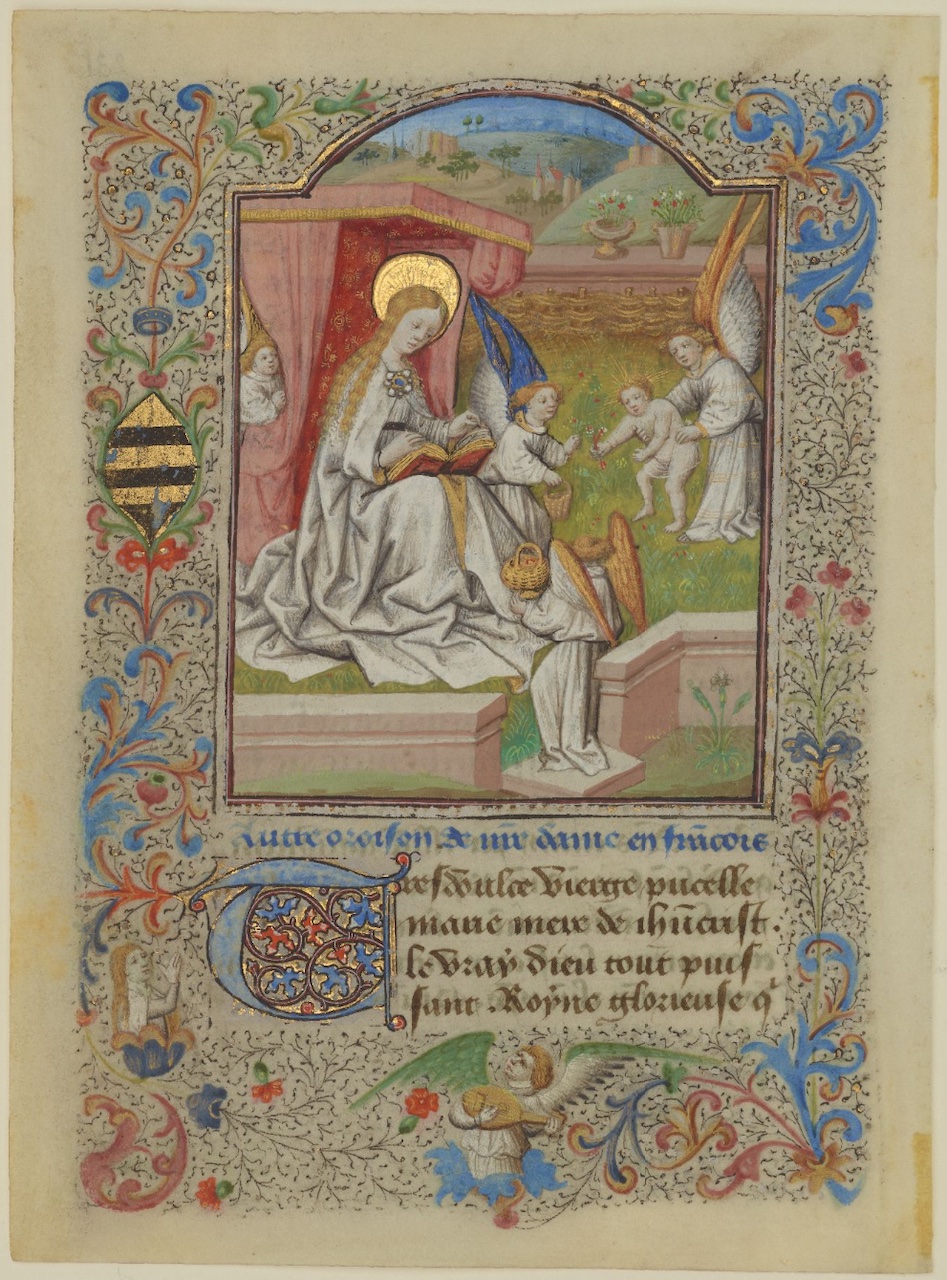 Autre oroison de nr̄e dame en francois
Tresdulce vierge pucelle
marie mere de ihūcrist.
le vray dieu tout puis
sant. Royne glorieuse qͥ